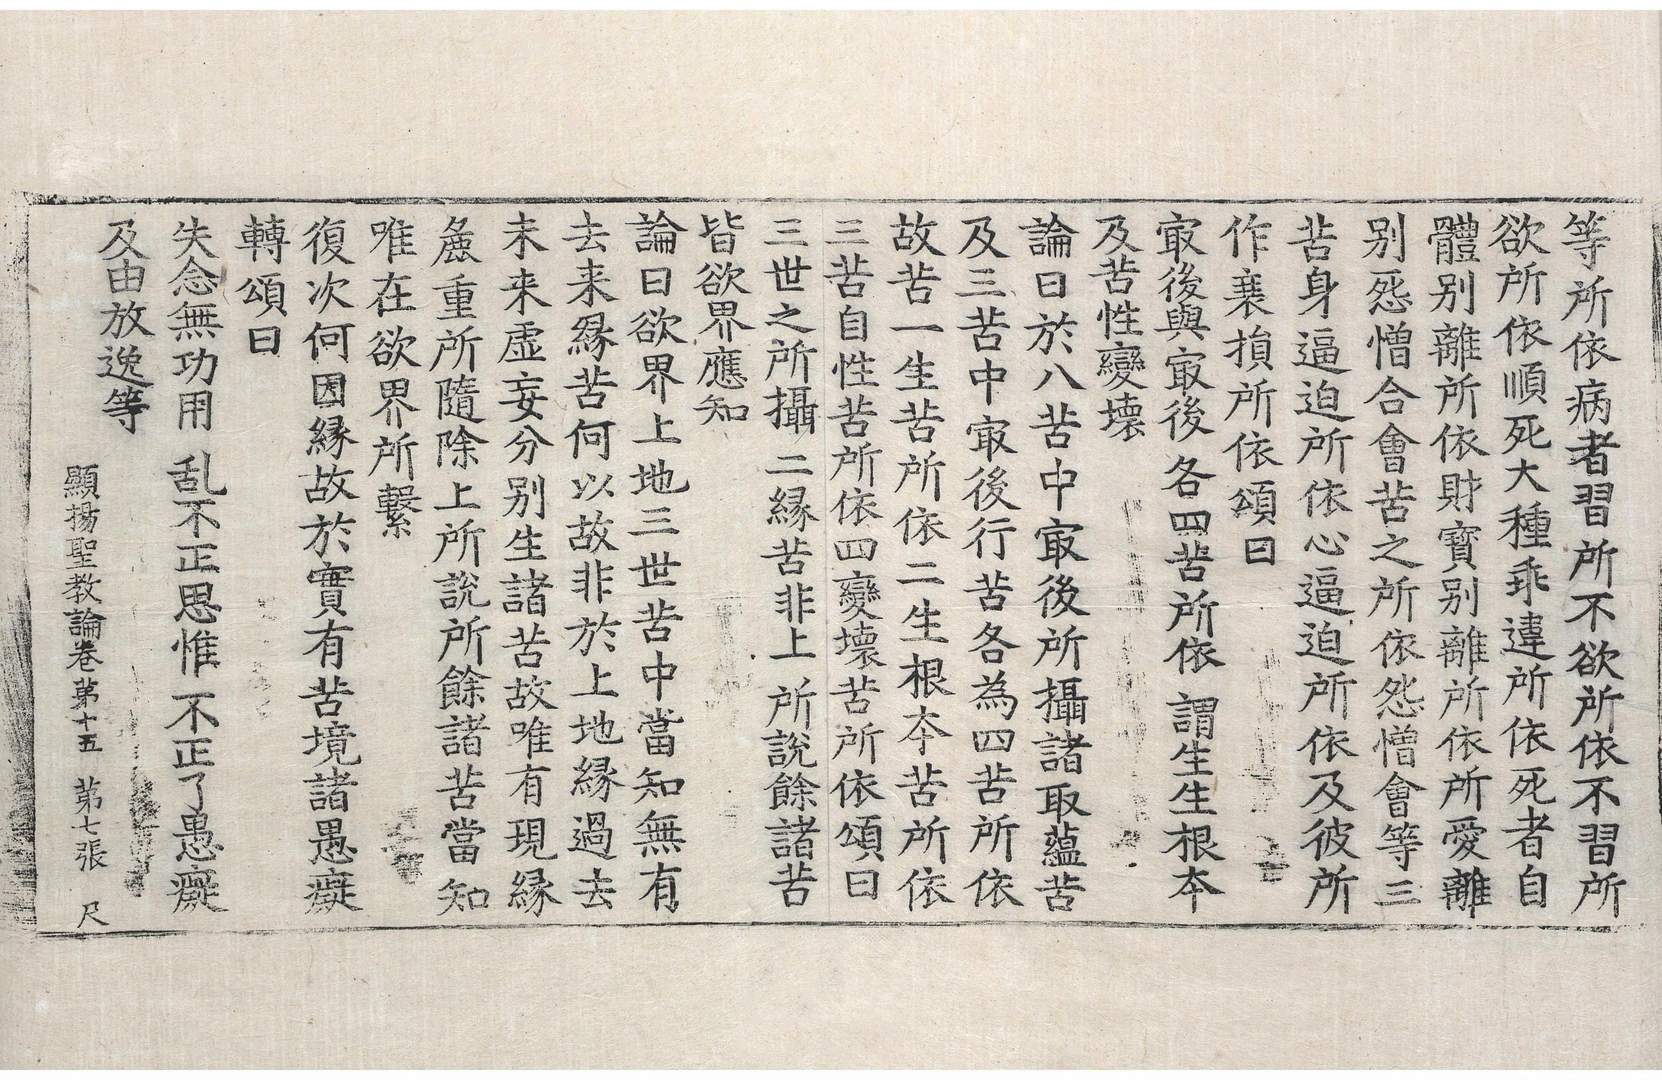 等所依病者習所不欲所依不習所
欲所依順死大種乖違所依死者自
體別離所依財寳别離所依所愛離
别怨憎合會苦之所依怨憎會等三
苦身逼迫所依心逼迫所依及彼所
作衰損所依頌曰
冣後與冣後 各四苦所依 謂生生根本
及苦性變壞
論曰於八苦中冣後所攝諸取蘊苦
及三苦中冣後行苦各為四苦所依
故苦一生苦所依二生根本苦所依
三苦自性苦所依四變壞苦所依頌曰
三世之所攝 二緣苦非上 所說餘諸苦
皆欲界應知
論曰欲界上地三世苦中當知無有
去来緣苦何以故非於上地緣過去
未来虛妄分别生諸苦故唯有現緣
麁重所隨除上所說所餘諸苦當知
唯在欲界所繫
復次何因緣故於實有苦境諸愚癡
轉頌曰
失念無功用 乱不正思惟 不正了愚癡
及由放逸等
顯揚聖教論卷第十五 第七張 尺